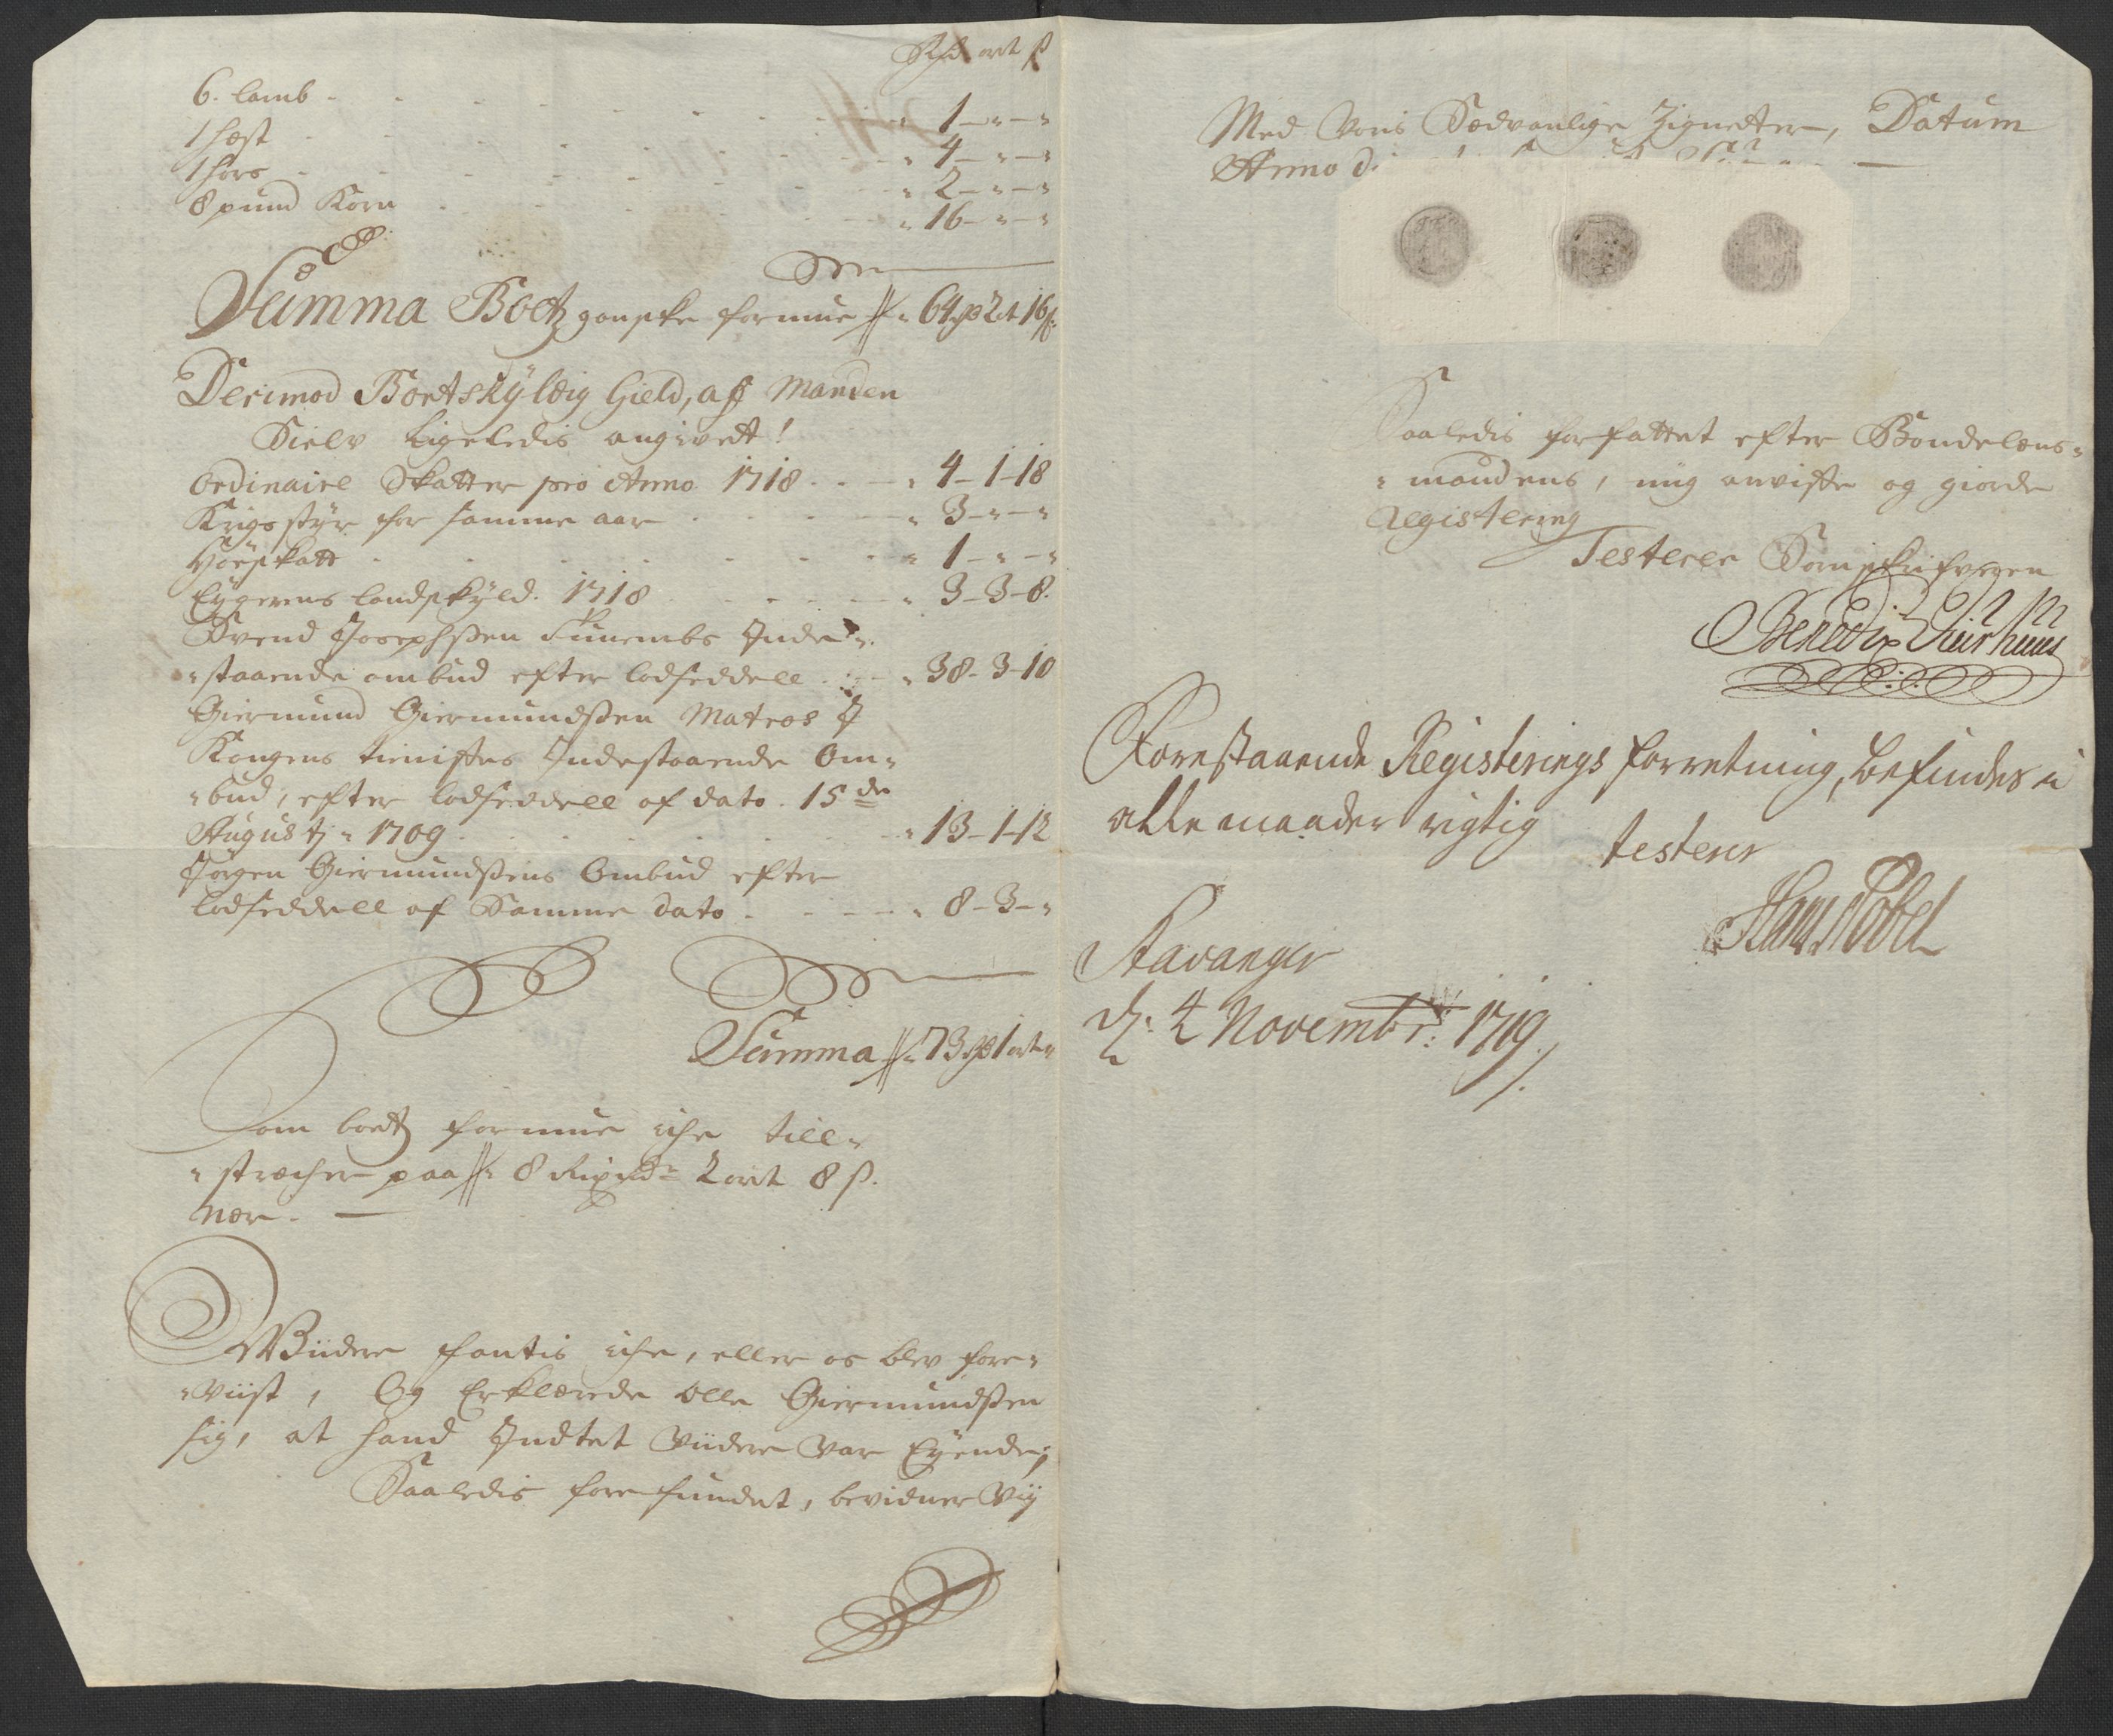 Rd ort ß
6. lamb - - - - - - - - " 1 - " - "
1 hæst - - - - - - - - " 4 - " - "
1 hors - - - - - - - - " 2 - " - "
8 pund Korn - - - - - - " 16 - " - "
Summa Boetz ganske formue // " 64 rd 2 ort 16 ß
Derimod Bortskÿldig Gield, aff Manden
Sielv ligeledis angivett!
Ordinaire Skatter pro Anno 1718 . . - " 4 - 1 - 18
Krigsstÿr for samme aar - - - " 3 - " - "
Hoeskatt - - - - - - " 1 - " - "
Eÿgerens landskÿld. 1718 - - - - " 3 - 3 - 8.
Svend Josephsen Inde "
" staaende ombud efter lodseddell . . - " 38 - 3 - 10
Giermund Giermundsen Matros J
Kongens tienistes Indestaaende Om "
" bud, efter lodseddell af dato. 15 de
Augustj " 1709 - - - - - - " 13 - 1 - 12
Jørgen Giermundsens Ombud efter
lodseddell af Samme dato - - - - " 8 - 3 - "
Summa // " 73 rd 1 ort "
Som boetz formue iche till "
" strecher paa // " 8 Rixdr 2 ort 8 ß.
nær. —
Wiidere fantis iche, eller os blev fore "
" viist, Og Erklærede Olle Giermundsen
sig, at hand Indtet viidere var Eÿende;
Saaledis forefundet, bevidner Vÿ
Med Voris Sædvanlige Zigneter, Datum
Anno
Saaledis forfattet efter Bondelens "
" mandens, mig anviste og giorde
Registering
Testerer Sorrenskrifveren
Forestaaende Registerings forretning, befindes i
alle maader rigtig
testerer
Hans Nobel
Stavanger
d: 4 Novembr: 1719.